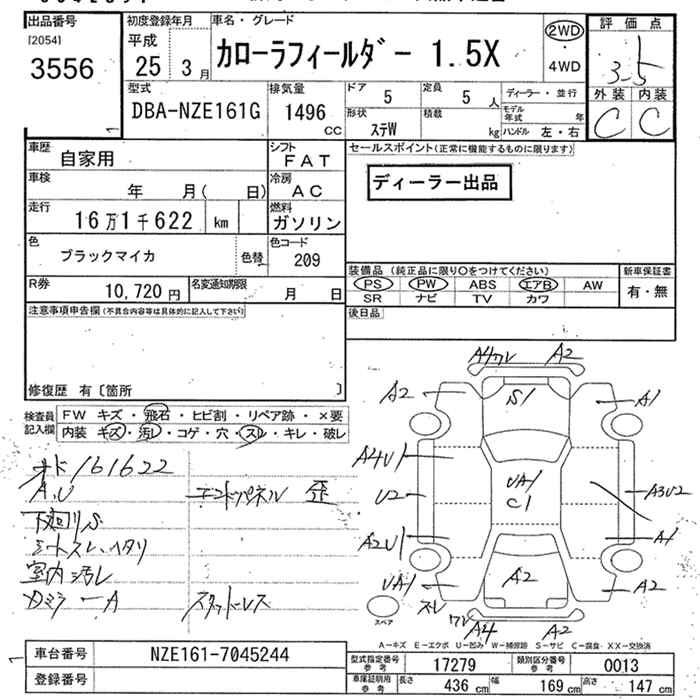 出品番号
[2054]
3556
初度登録年月
平成
25年 3月
車名・グレード
カローラフィールダー 1.5X
2WD
・
4WD
評価点
3.5
外装 内装
C C
型式
DBA-NZE161G
排気量
1496
CC
ドア
5
定員
5人
形状
ステW
積載
kg
ディーラー・並行
モデル年式 年
ハンドル 左・右
車歴
自家用
シフト
FAT
車検
年 月( 日)
冷房
AC
走行
16万1千622 km
燃料
ガソリン
色
ブラックマイカ
色替
色コード
209
R券
10,720円
名変通知期限
月 日
セールスポイント(正常に機能するものに限ります)
ディーラー出品
装備品(純正品に限り○をつけてください)
PS PW ABS エアB AW
SR ナビ TV カワ
新車保証書
有・無
後日品
注意事項申告欄(不具合内容等は具体的に記入して下さい)
修復歴 有〔箇所 〕
検査員記入欄
FW キズ・飛石・ヒビ割・リペア跡・×要
内装 キズ・汚レ・コゲ・穴・スレ・キレ・破レ
オド161622
A.U
エンドパネル 歪
下廻りS
シートスレ、ヘタリ
室内汚レ
Dミラー A
スタッドレス
A4ワレ A2
A2 S1 A1
A4U1
UA1
C1
U2
A3U2
A2U1
A1
UA1
スレ
A2
A2
ワレ
A4 A2
スペア
A－キズ E－エクボ U－凹み W－補修跡 S－サビ C－腐食 ・XX－交換済
車台番号
NZE161-7045244
登録番号
型式指定番号
参考
17279
類別区分番号
参考
0013
車庫証明用
参考
長さ 436cm
幅 169cm
高さ 147cm